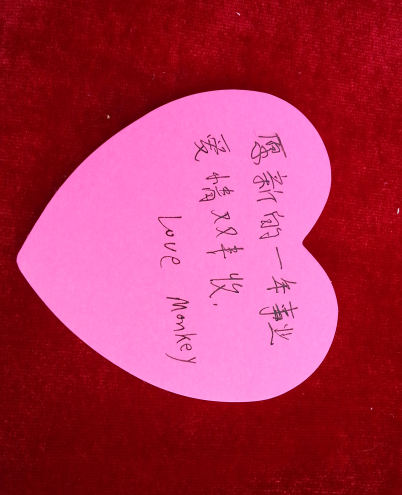 愿新的一年事业
爱情双丰收.
Love Monkey